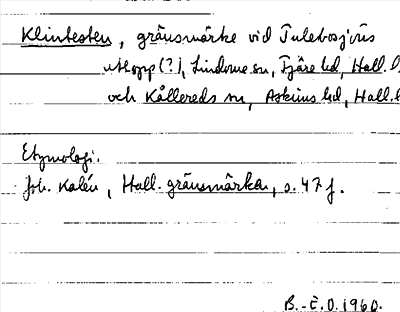 Klintesten, gränsmärke vid Tulebosjöns
utlopp (?), Lindome sn, Fjäre hd, Hall. l
och Kållereds sn, Askims hd, Hall. l
Etymologi.
Joh. Kalén, Hall. gränsmärken, s. 47 f.
B.-E.O. 1960.